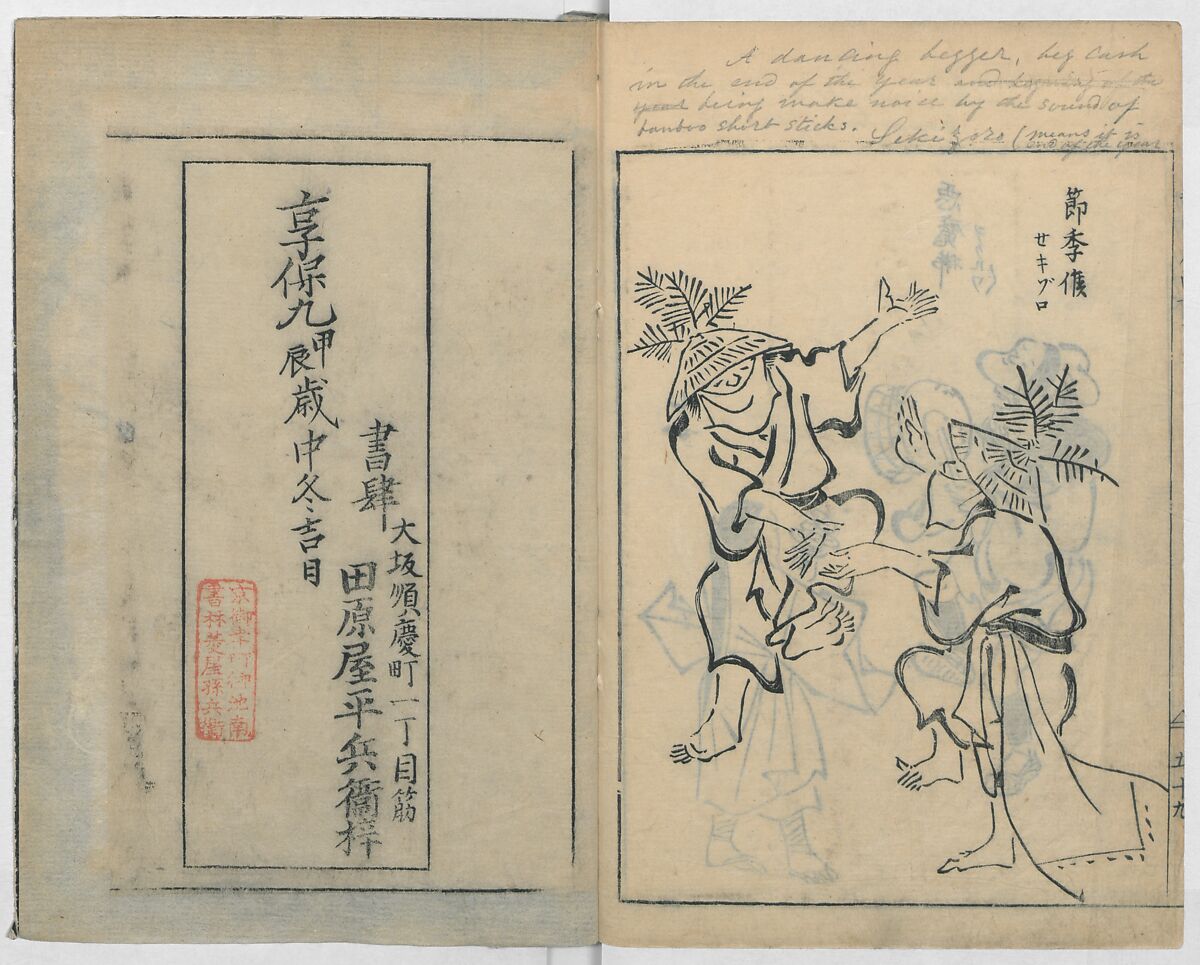 A dancing begger, beg cash
in the end of the year and begining of the
year being make noise by the sound of
bamboo short sticks. Sekizoro (means it is
end of the year
節季候
セキゾロ
五十九
書肆
大坂順慶町一丁目筋
田原屋平兵衞梓
享保九甲辰歳中冬吉日
京御幸町御池南
書林菱屋孫兵衛